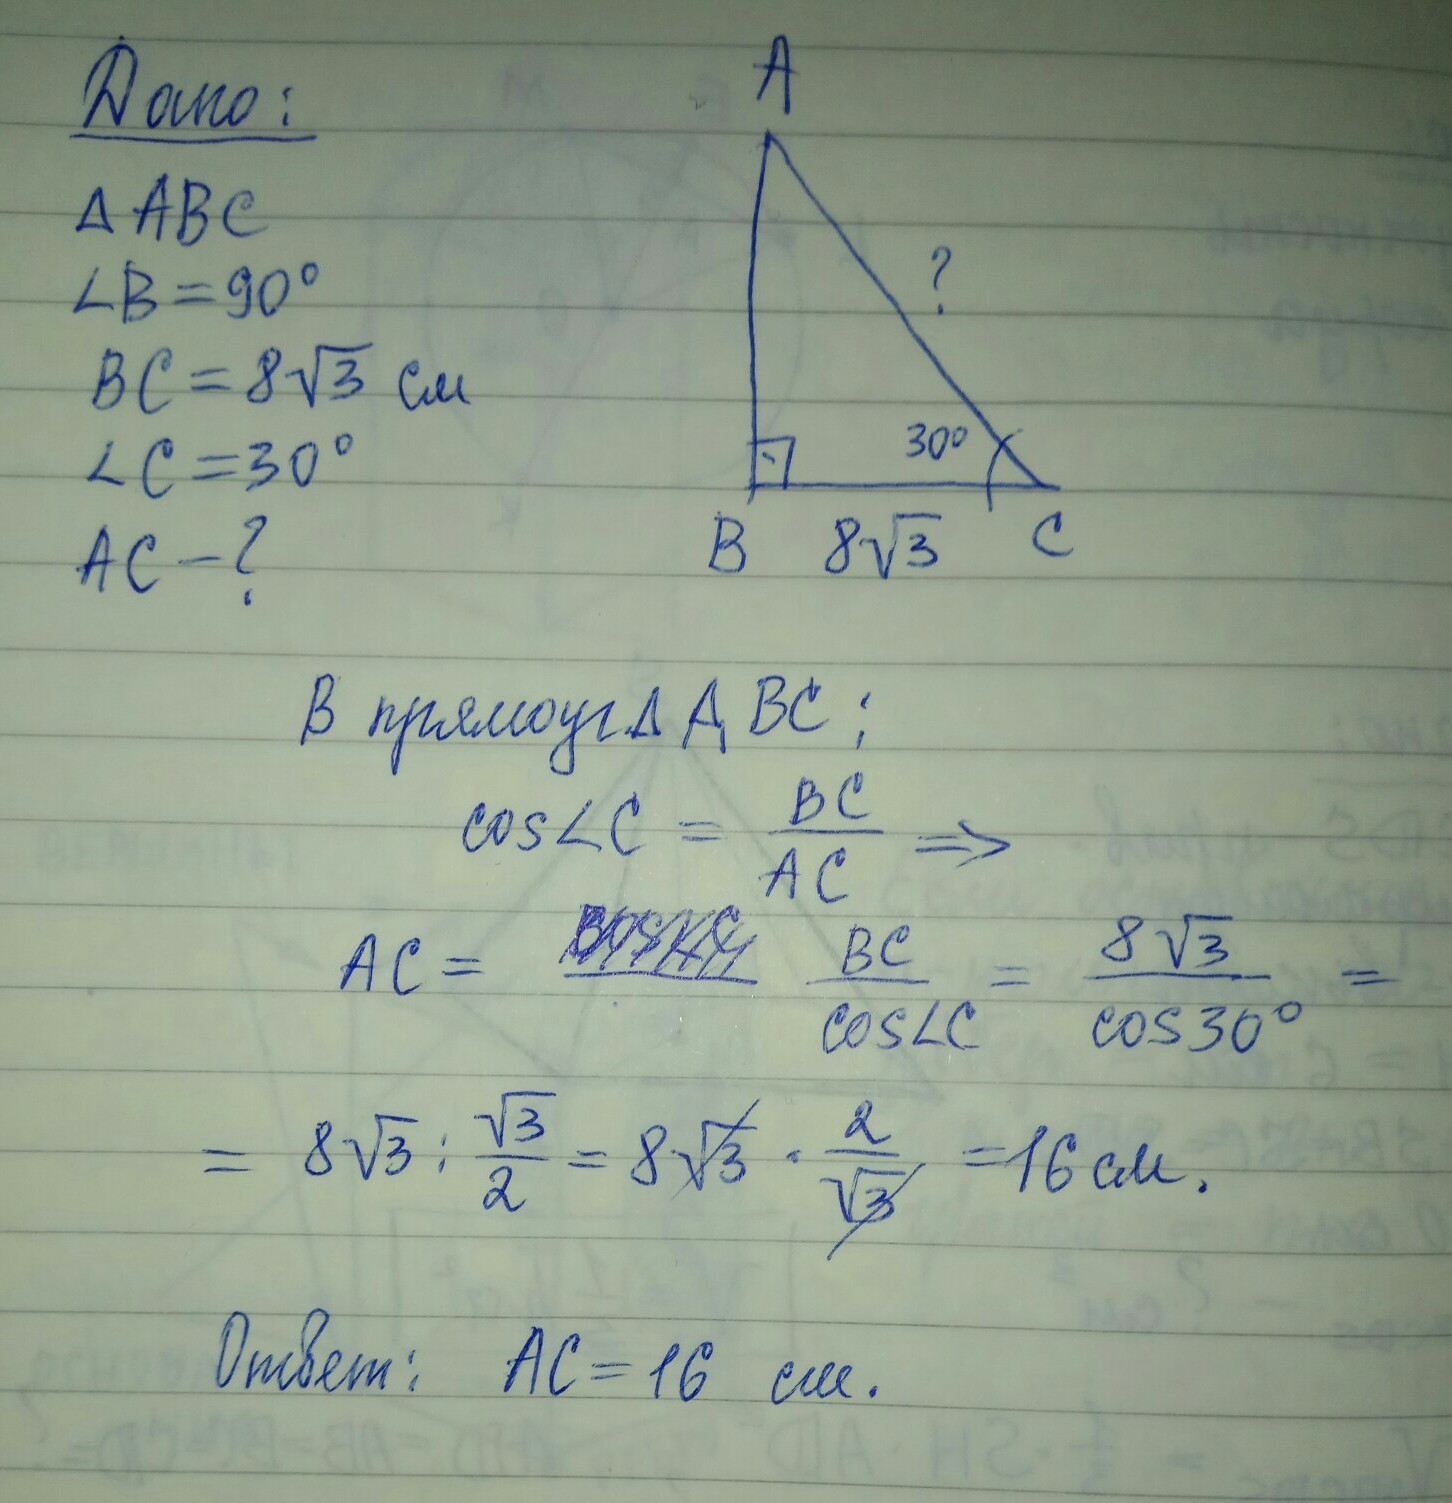 Дано:
△ABC
∠B=90°
BC=8√3 см
∠C=30°
AC-?
A
?
30°
B 8√3 C
В прямоуг△ ABC:
cos∠C = BC/AC ⇒
AC = BC/cos∠C = 8√3/cos30° =
= 8√3 : √3/2 = 8√3 · 2/√3 =16 см.
Ответ: AC=16 см.